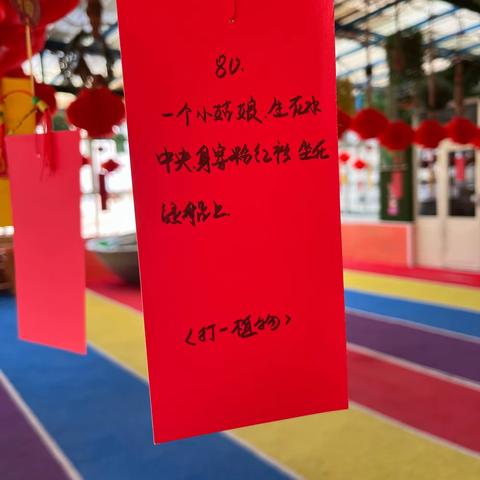 80.
一个小姑娘.生在水
中央.身穿粉红袄 坐在
绿船上.
<打一植物>